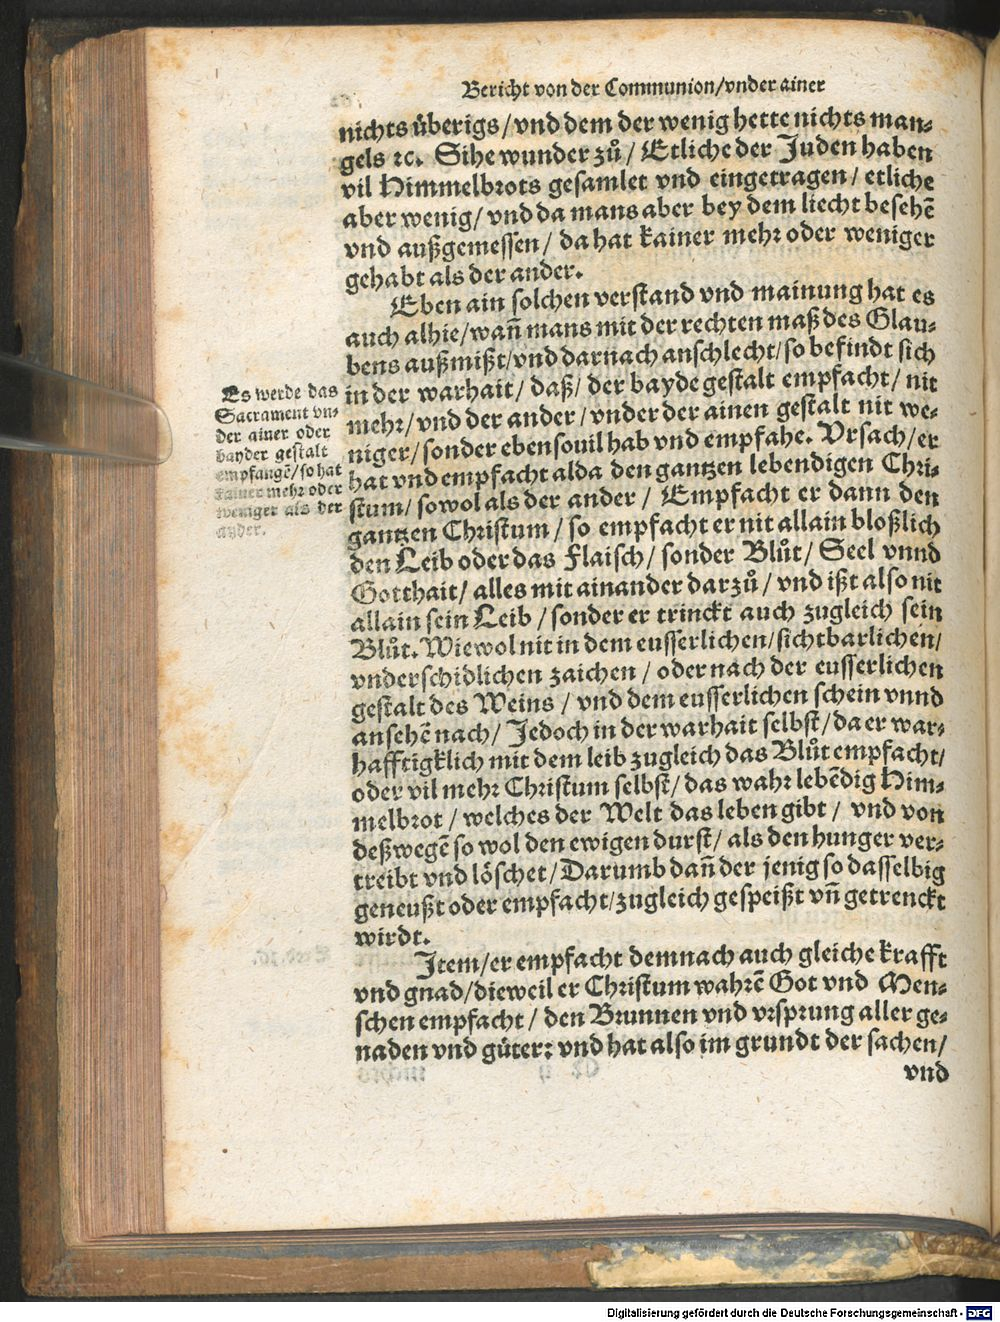 Bericht von der Communion/vnder ainer
nichts überigs/vnd dem der wenig hette nichts man⸗
gels ꝛc. Sihe wunder zuͦ/ Etliche der Juden haben
vil Himmelbrots gesamlet vnd eingetragen/ etliche
aber wenig/ vnd da mans aber bey dem liecht besehē
vnd außgemessen/ da hat kainer mehr oder weniger
gehabt als der ander.
Eben ain solchen verstand vnd mainung hat es
auch alhie/wañ mans mit der rechten maß des Glau⸗
bens außmißt/vnd darnach anschlecht/so befindt sich
in der warhait/ daß/ der bayde gestalt empfacht/ nit
mehr/vnd der ander/vnder der ainen gestalt nit we⸗
niger/sonder ebensouil hab vnd empfahe. Vrsach/er
hat vnd empfacht alda den gantzen lebendigen Chri⸗
stum/sowol als der ander/ Empfacht er dann den
gantzen Christum/ so empfacht er nit allain bloßlich
den Leib oder das Flaisch/ sonder Bluͦt/ Seel vnnd
Gotthait/ alles mit ainander darzuͦ/ vnd ißt also nit
allain sein Leib/sonder er trinckt auch zugleich sein
Bluͦt. Wiewol nit in dem eusserlichen/sichtbarlichen/
vnderschidlichen zaichen/ oder nach der eusserlichen
gestalt des Weins/ vnd dem eusserlichen schein vnnd
ansehē nach/ Jedoch in der warhait selbst/da er war⸗
hafftigklich mit dem leib zugleich das Bluͦt empfacht/
oder vil mehr Christum selbst/das wahr lebēdig Him⸗
melbrot/welches der Welt das leben gibt/ vnd von
deßwegē so wol den ewigen durst/als den hunger ver⸗
treibt vnd löschet/Darumb dañ der jenig so dasselbig
geneußt oder empfacht/zugleich gespeißt vñ getrenckt
wirdt.
Item/er empfacht demnach auch gleiche krafft
vnd gnad/dieweil er Christum wahrē Got vnd Men⸗
schen empfacht/ den Brunnen vnd vrsprung aller ge⸗
naden vnd güter: vnd hat also im grundt der sachen/
vnd
Es werde das
Sacrament vn⸗
der ainer oder
bayder gestalt
empfangē/so hat
kainer mehr oder
weniger als der
ander.
Digitalisierung gefördert durch die Deutsche Forschungsgemeinschaft - DFG